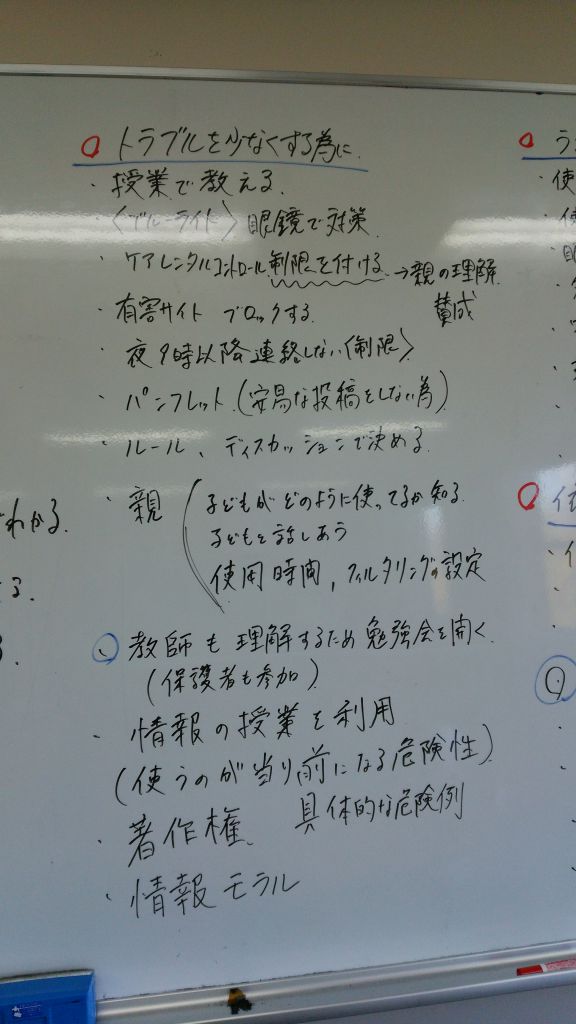 ○ トラブルを少なくする為に
・授業で教える
・〈ブルーライト〉眼鏡で対策
・ケアレンタルコントロール制限を付ける →親の理解
賛成
・有害サイト ブロックする
・夜9時以降連絡しない〈制限〉
・パンフレット(安易な投稿をしない為)
・ルール、ディスカッションで決める
・親
子どもがどのように使ってるか知る
子どもと話しあう
使用時間,フィルタリングの設定
・教師も理解するため勉強会を開く
(保護者も参加)
・情報の授業を利用
(使うのが当り前になる危険性)
・著作権、具体的な危険例
・情報モラル
わかる.
る.
○ う
・使
・使
・眼
○